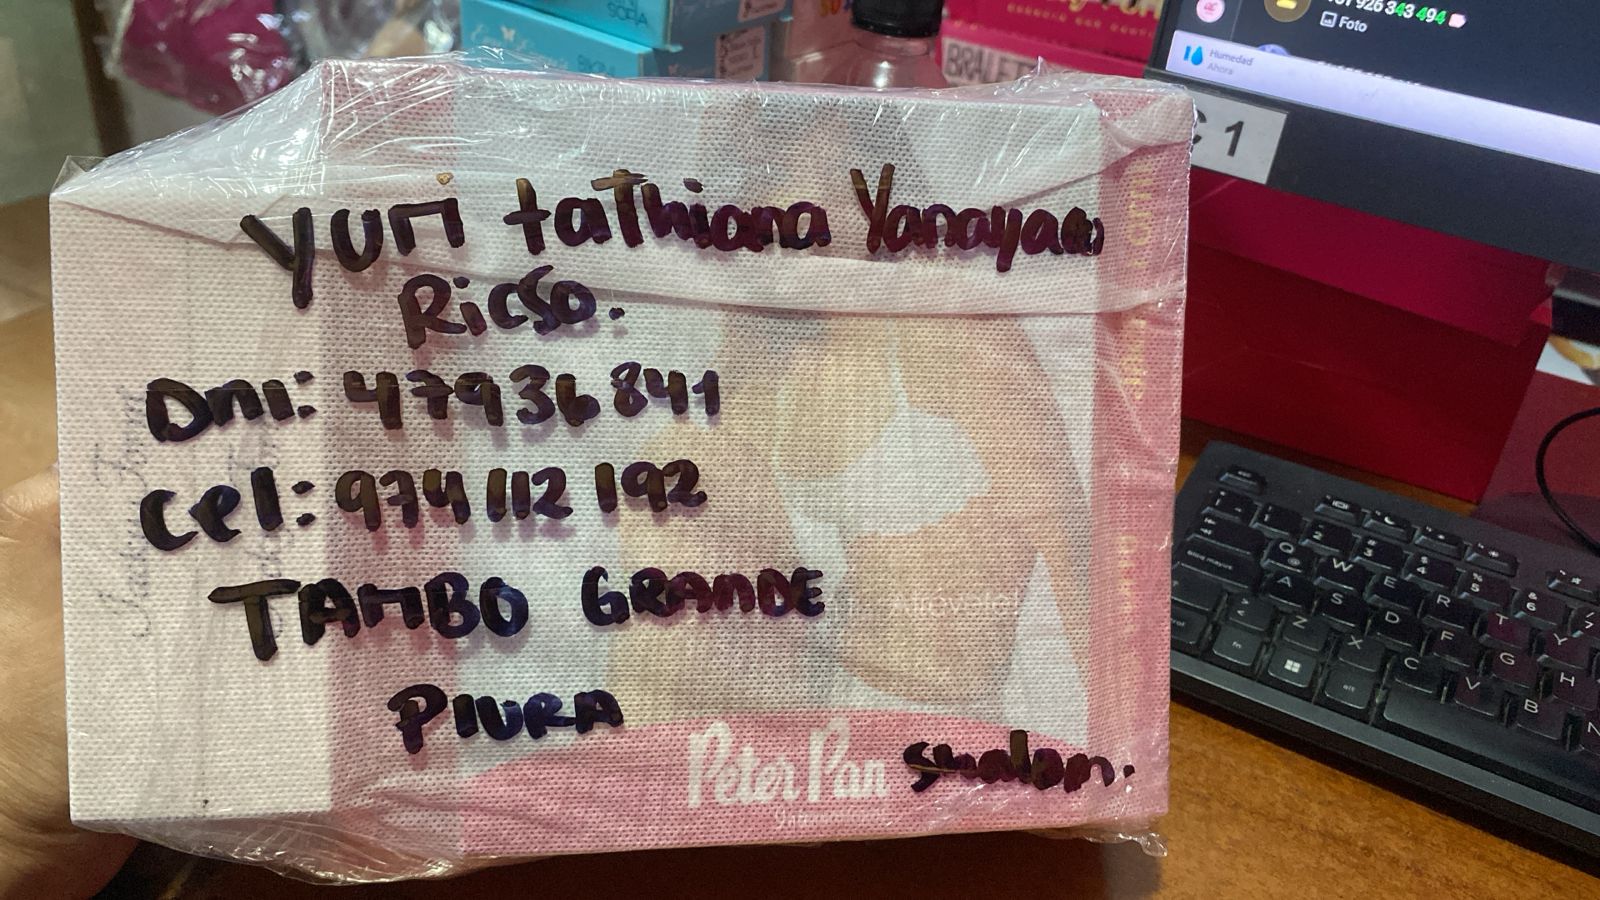 SOFIA
BIKINI
BRALET
926 343 494
Foto
Humedad
Ahora
C 1
Yuri taThiana Yanayaco
Ricso.
Dni: 47936841
Cel: 974 112 192
TAMBO GRANDE
PIURA
Shalom.
Atrévete!
Peter Pan